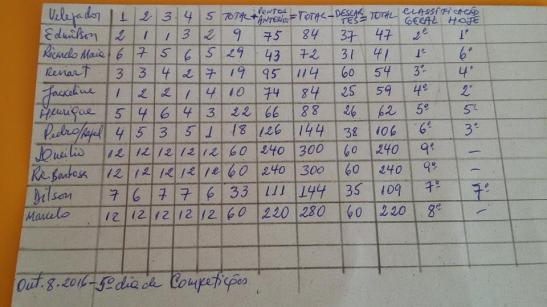 Velejador 1 2 3 4 5 TOTAL + PONTOS ANTERIO = TOTAL - DESCAR TES = TOTAL CLASSIFICAÇÃO GERAL HOJE
Edmilson 2 1 1 3 2 9 75 84 37 47 2º 1º
Ricardo Maia 6 7 5 6 5 29 43 72 31 41 1º 6º
Renart 3 3 4 2 7 19 95 114 60 54 3º 4º
Jackeline 1 2 2 1 4 10 74 84 25 59 4º 2º
Henrique 5 4 6 4 3 22 66 88 26 62 5º 5º
Pedro/ 4 5 3 5 1 18 126 144 38 106 6º 3º
12 12 12 12 12 60 240 300 60 240 9º -
Barbosa 12 12 12 12 12 60 240 300 60 240 9º -
Dilson 7 6 7 7 6 33 111 144 35 109 7º 7º
Marcelo 12 12 12 12 12 60 220 280 60 220 8º -
Out. 8. 2016 - 5º dia de Competições